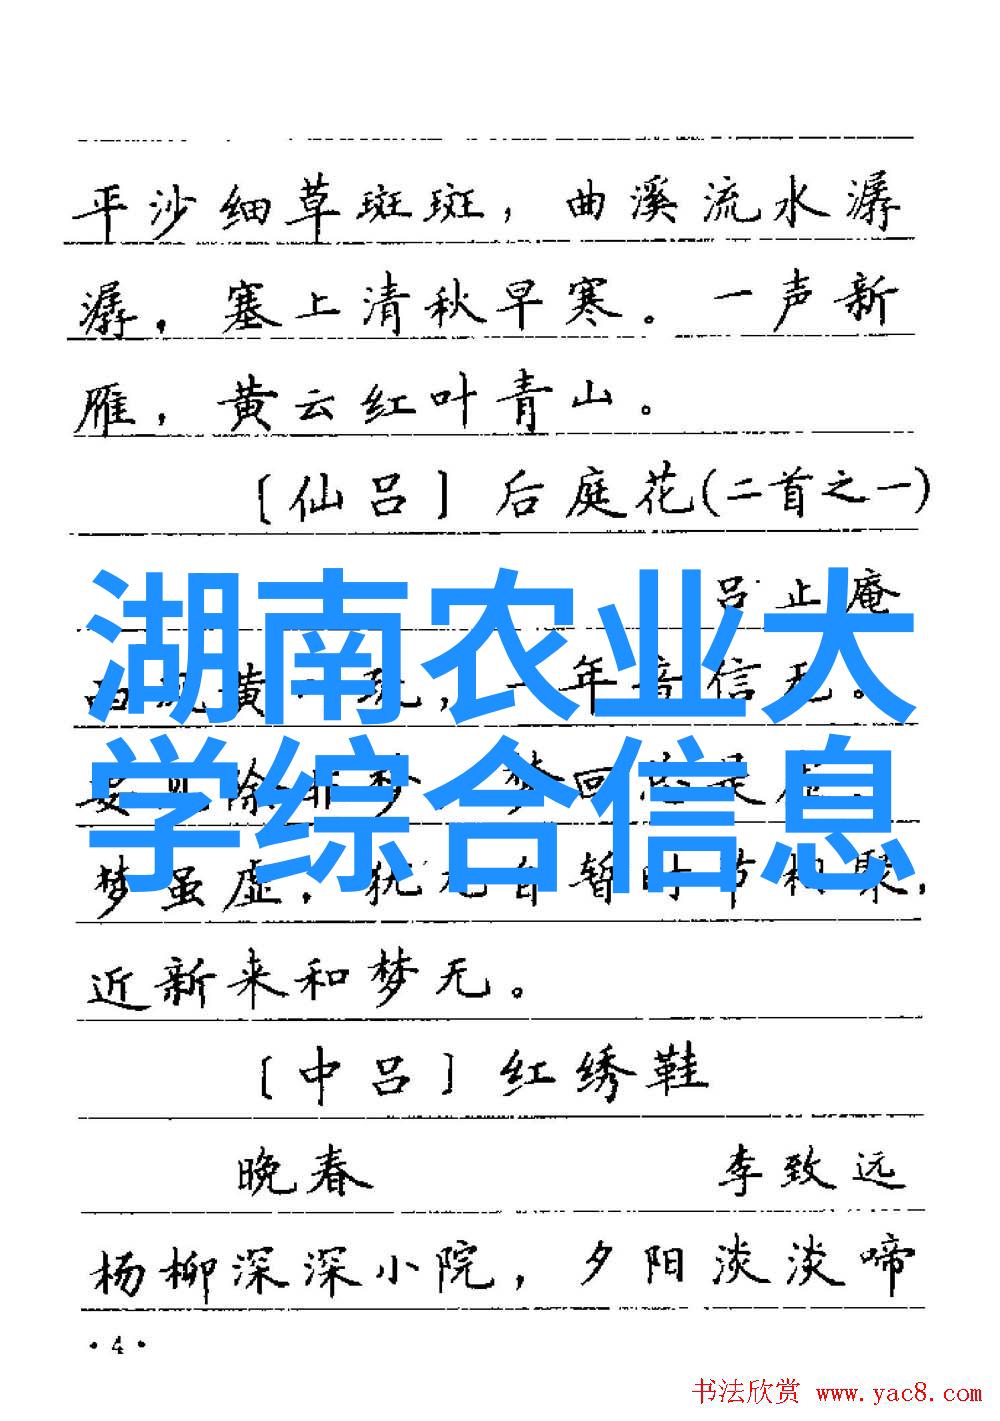 平沙细草斑斑，曲溪流水潺
潺，塞上清秋早寒。一声新
雁，黄云红叶青山。
［仙吕］后庭花(二首之一)
吕止庵
湖南农业大
年音信无。
学综合信息
梦回
梦虽虚，犹 自暂时节相聚，
近新来和梦无。
［中吕］红绣鞋
晚春 李致远
杨柳深深小院，夕阳淡淡啼
·4·
书法欣赏 www.yac8.com